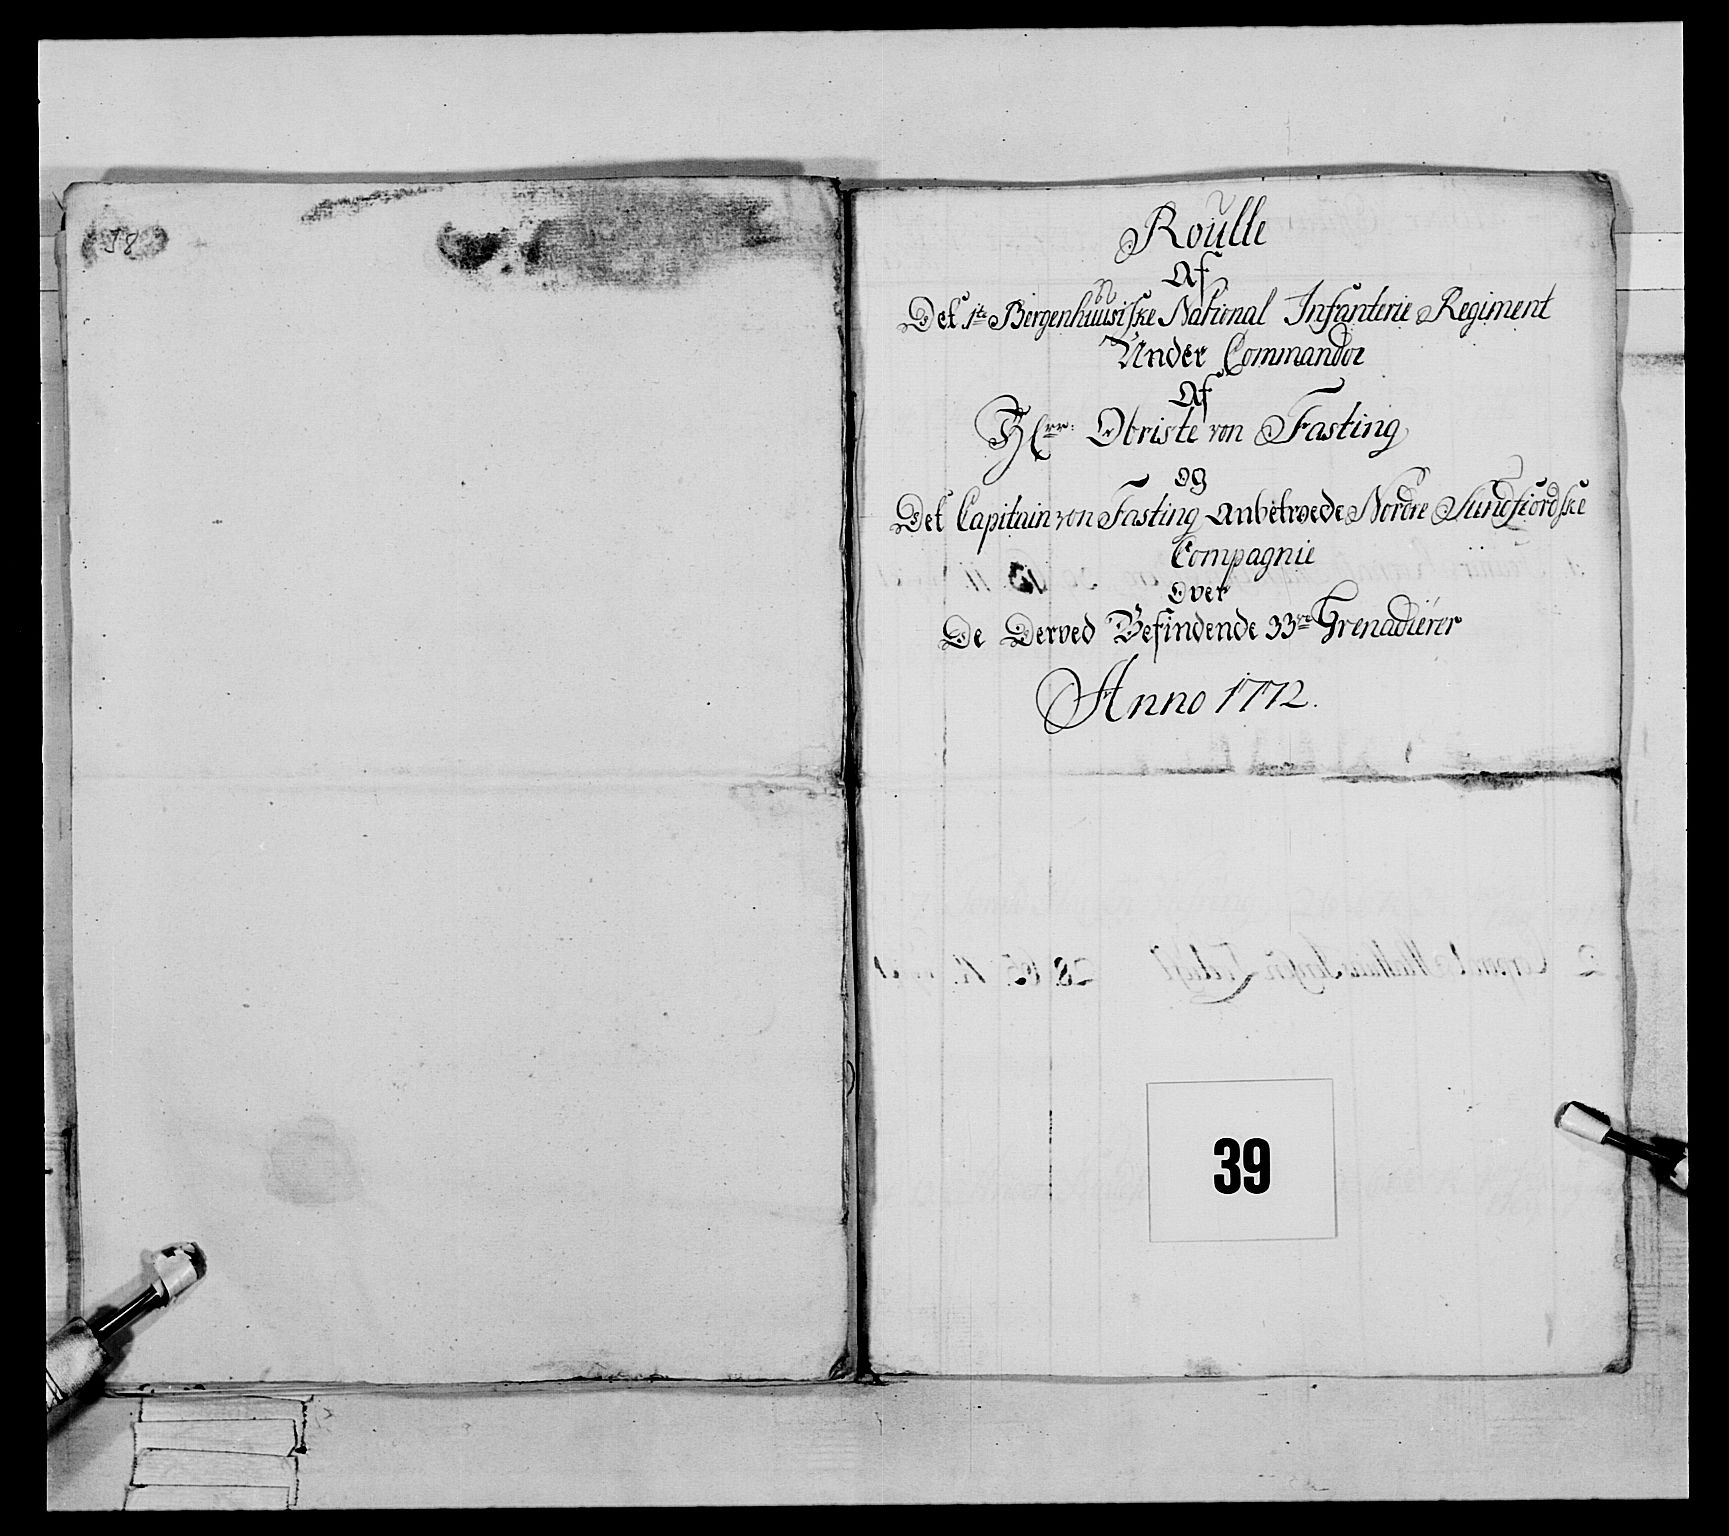 38
Roulle
Af
Det 1te Bergenhuusiske National Infanterie Regiment
Under Commandoe
Af
HErr: Obriste von Fasting
og
Det Capitain von Fasting Anbetroede Nordre Sundfiordske
Compagnie
Over
De Derved Befindende 33re Grenadierer
Anno 1772.
39